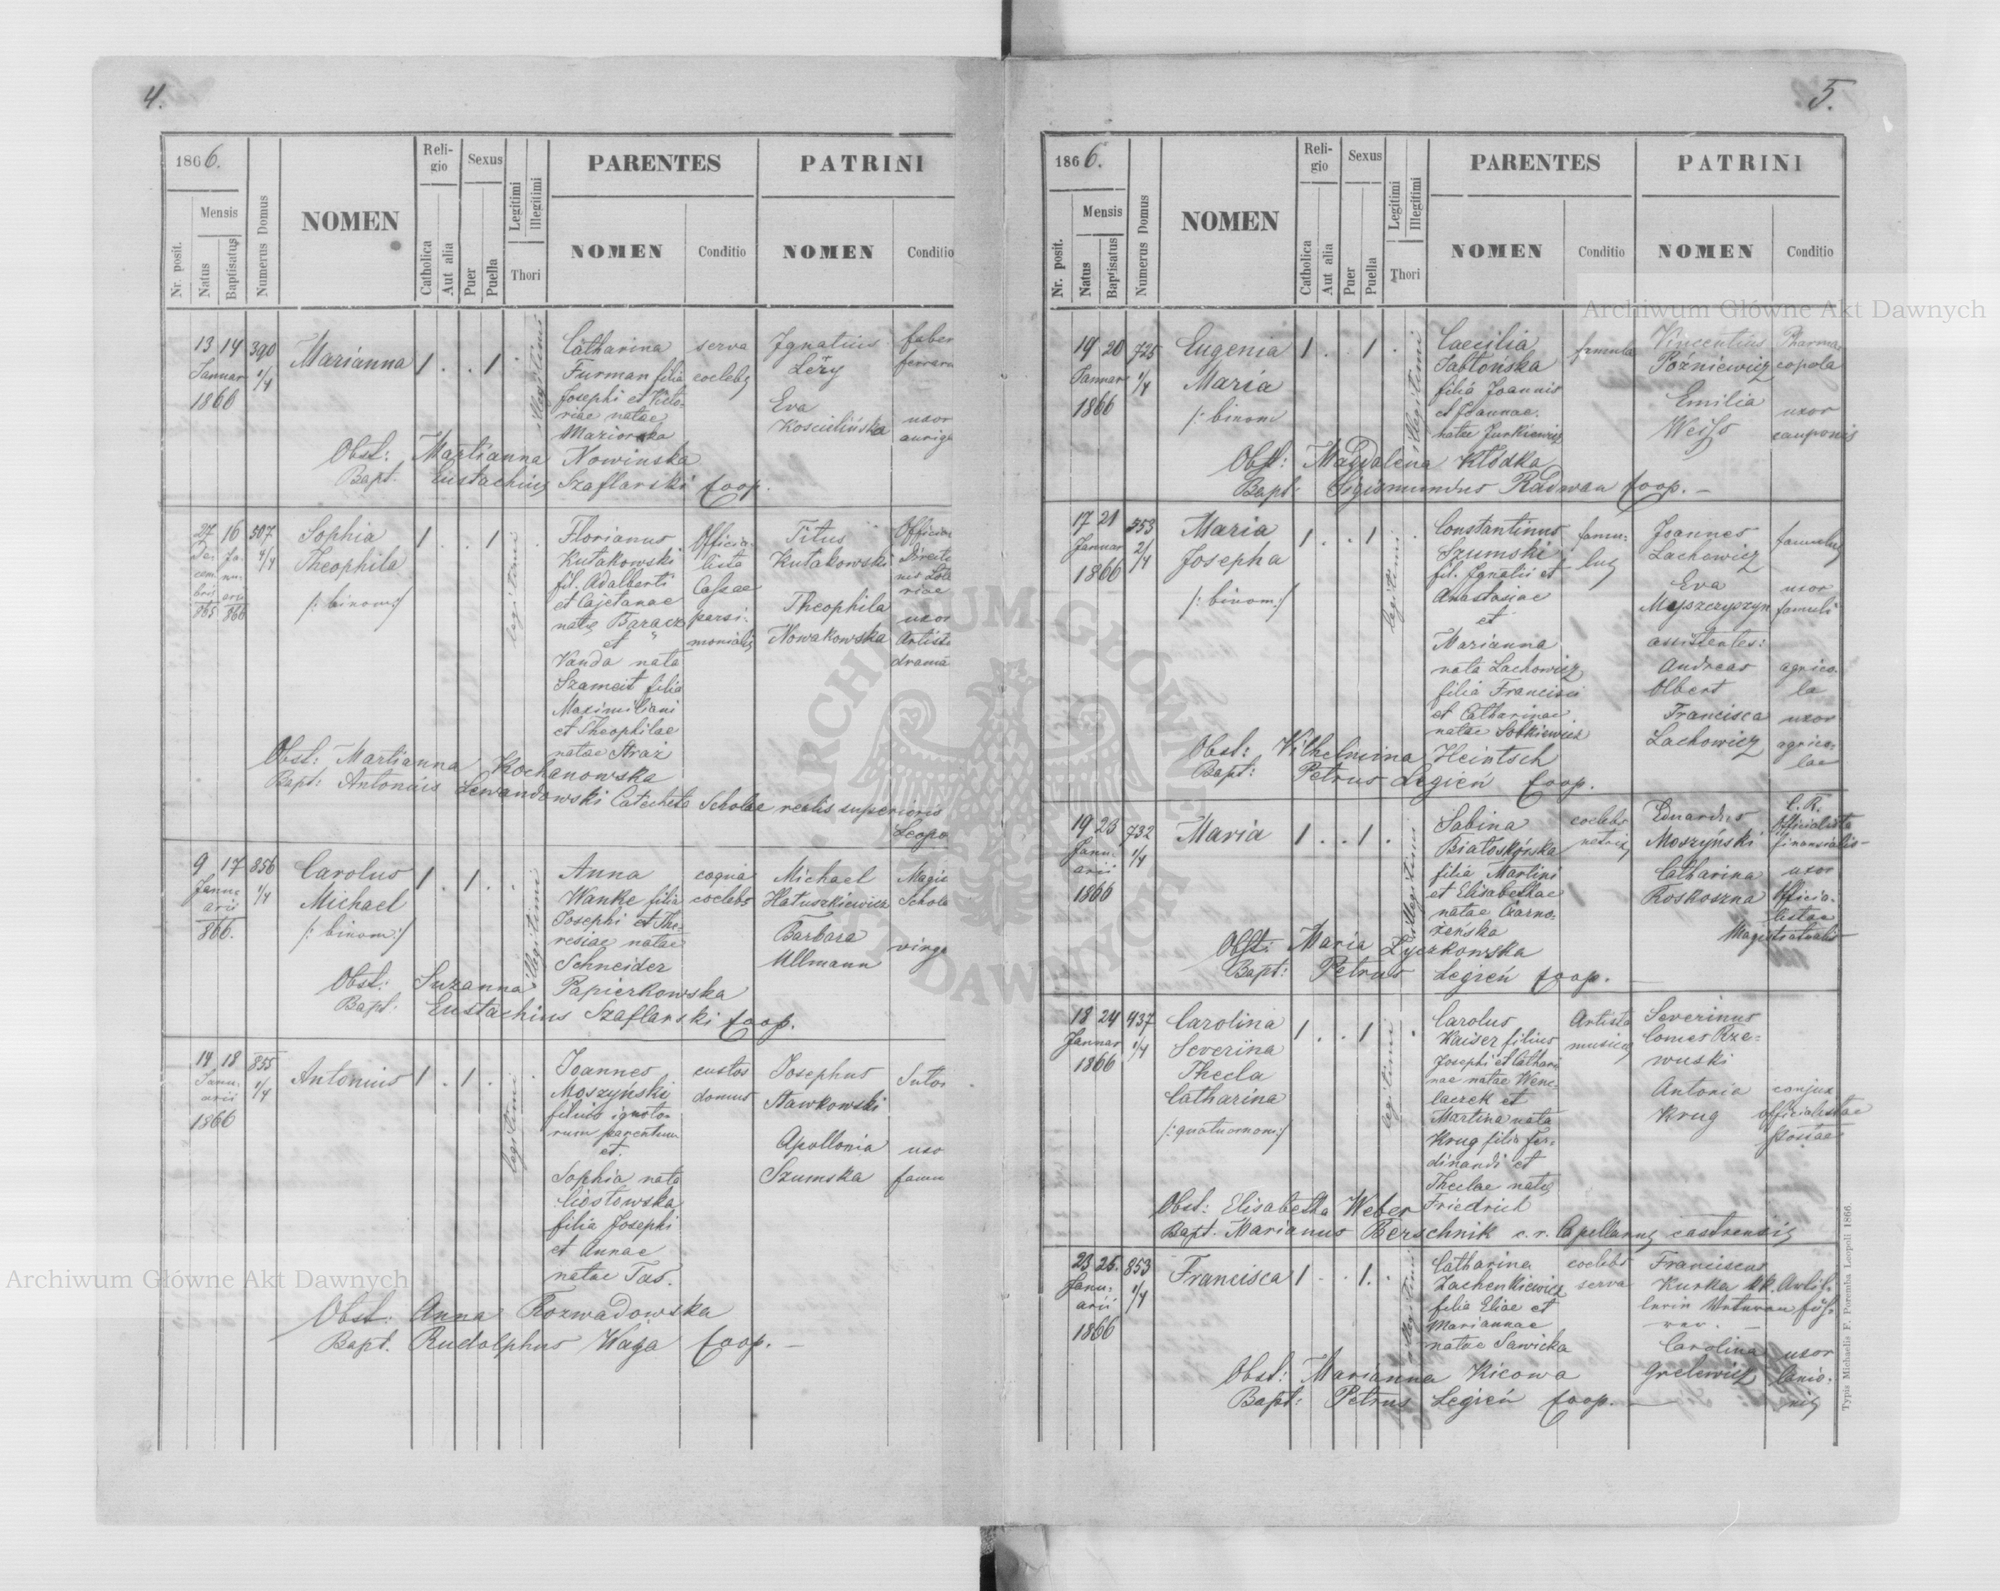 4.
1866.
Nr. posit.
Mensis
Natus
Baptisatus
Numerus Domus
NOMEN
Religio
Catholica
Aut alia
Sexus
Puer
Puella
Legitimi
Illegitimi
Thori
PARENTES
NOMEN
Conditio
PATRINI
NOMEN
Conditio
13 14 390
Januar 1/4
1866
Marianna
1 . . 1 .
illegitimi
Catharina
Furman filia
Josephi et Victo-
riae natae
serva
coelebs
Ignatius
Eva
Kościelińska
faber
uxor
Obst: Martianna Nowinska
Bapt. Eustachius Szaflarski Coop.
27 16 507
De- Ja- 4/4
cem- nu-
bris arii
865 866
Sophia
Theophila
/: binom:/
1 . . 1 .
legitimi
Florianus
Kutakowski
fil. Adalberti
et Cajetanae
natę Baracz
et
Vanda nata
Szameit filia
Maximiliani
et Theophilae
natae Straż
Officia-
lista
Cassae
parsi-
monialis
Titus
Kutakowski
Theophila
Nowakowska
uxor
Artista
drama
Obst: Martianna Kochanowska
Bapt: Antonius Lewandowski Catecheta Scholae realis superioris
Leopo
9 17 856
Janu- 1/4
arii
866.
Carolus
Michael
/: binom:/
1 . 1 . .
illegitimi
Anna
Wanke filia
Josephi et The-
resiae natae
Schneider
coqua
coelebs
Michael
Hatuszkiewicz
Barbara
Ullmann
Magis
Schola
virgo
Obst: Suzanna Papierkowska
Bapt. Eustachius Szaflarski Coop.
14 18 855
Janu- 1/4
arii
1866
Antonius
1 . 1 . .
legitimi
Joannes
Moszyński
filius ignoto-
rum parentum
et
Sophia nata
Ciostowska
filia Josephi
et Annae
natae Tas.
custos
domus
Josephus
Stawkowski
Apollonia
Szumska
Sutor
uxo
famu
Obst: Anna Rozwadowska
Bapt. Rudolphus Waga Coop.
5.
1866.
Nr. posit.
Mensis
Natus
Baptisatus
Numerus Domus
NOMEN
Religio
Catholica
Aut alia
Sexus
Puer
Puella
Legitimi
Illegitimi
Thori
PARENTES
NOMEN
Conditio
PATRINI
NOMEN
Conditio
19 20 725
Januar 1/4
1866
Eugenia
Maria
/: binom
1 . . 1 .
illegitimi
Caecilia
Jabłońska
filia Joannis
et Joannae
natae Jurkiewicz
famula
Vincentius
Późniewicz
Emilia
Weiss
Pharma-
copola
uxor
cauponis
Obst: Magdalena Kłódka
Bapt: Sigismundus Radwan Coop.
17 21 553
Januar 2/4
1866
Maria
Josepha
/: binom:/
1 . . 1 .
legitimi
Constantinus
Szumski
fil. Ignatii et
Anastasiae
et
Marianna
nata Lachowicz
filia Francisci
et Catharinae
natae Sobkiewicz
famu-
lus
Joannes
Lachowicz
Eva
Majszczyszyn
assistentes:
Andreas
Olbert
Francisca
Lachowicz
famulus
uxor
famuli
agrico-
la
uxor
agrico-
lae
Obst: Wilhelmina Heintsch
Bapt: Petrus Legień Coop.
19 23 732
Janu- 1/4
arii
1866
Maria
1 . . 1 .
illegitimi
Sabina
Białoskórska
filia Martini
et Elisabethae
natae Czarno-
żańska
coelebs
Eduardus
Moszyński
Catharina
Roskoszna
C. R.
Officialista
financialis
uxor
Officia-
listae
Magistratualis
Obst: Maria Życzkowska
Bapt: Petrus Legień Coop.
18 24 437
Januar 1/4
1866
Carolina
Severina
Thecla
Catharina
/: quatuornom:/
1 . . 1 .
legitimi
Carolus
Kaiser filius
Josephi et Cathari
nae natae Wenc-
laczek et
Martina nata
Krug filia Fer-
dinandi et
Theclae natę
Friedrich
Artista
musicus
Severinus
Comes Rze-
wuski
Antonia
Krug
conjux
officialistae
Obst: Elisabetha Weber
Bapt. Marianus Berschnik c. r. Capellanus castrensis
23 25 853
Janu- 1/4
arii
1866
Francisca
1 . . 1 .
illegitimi
Catharina
Zachenkiewicz
filia Eliae et
Mariannae
natae Sawicka
coelebs
serva
Franciscus
Kurka kk. Artil-
lerie Unteran füh-
rer. —
Carolina
Grelewicz
uxor
lanio-
nis
Obst: Marianna Kicowa
Bapt: Petrus Legień Coop.
Typis Michaelis F. Poremba Leopoli 1866.
Archiwum Główne Akt Dawnych
Archiwum Główne Akt Dawnych
ARCHIWUM GŁÓWNE AKT DAWNYCH